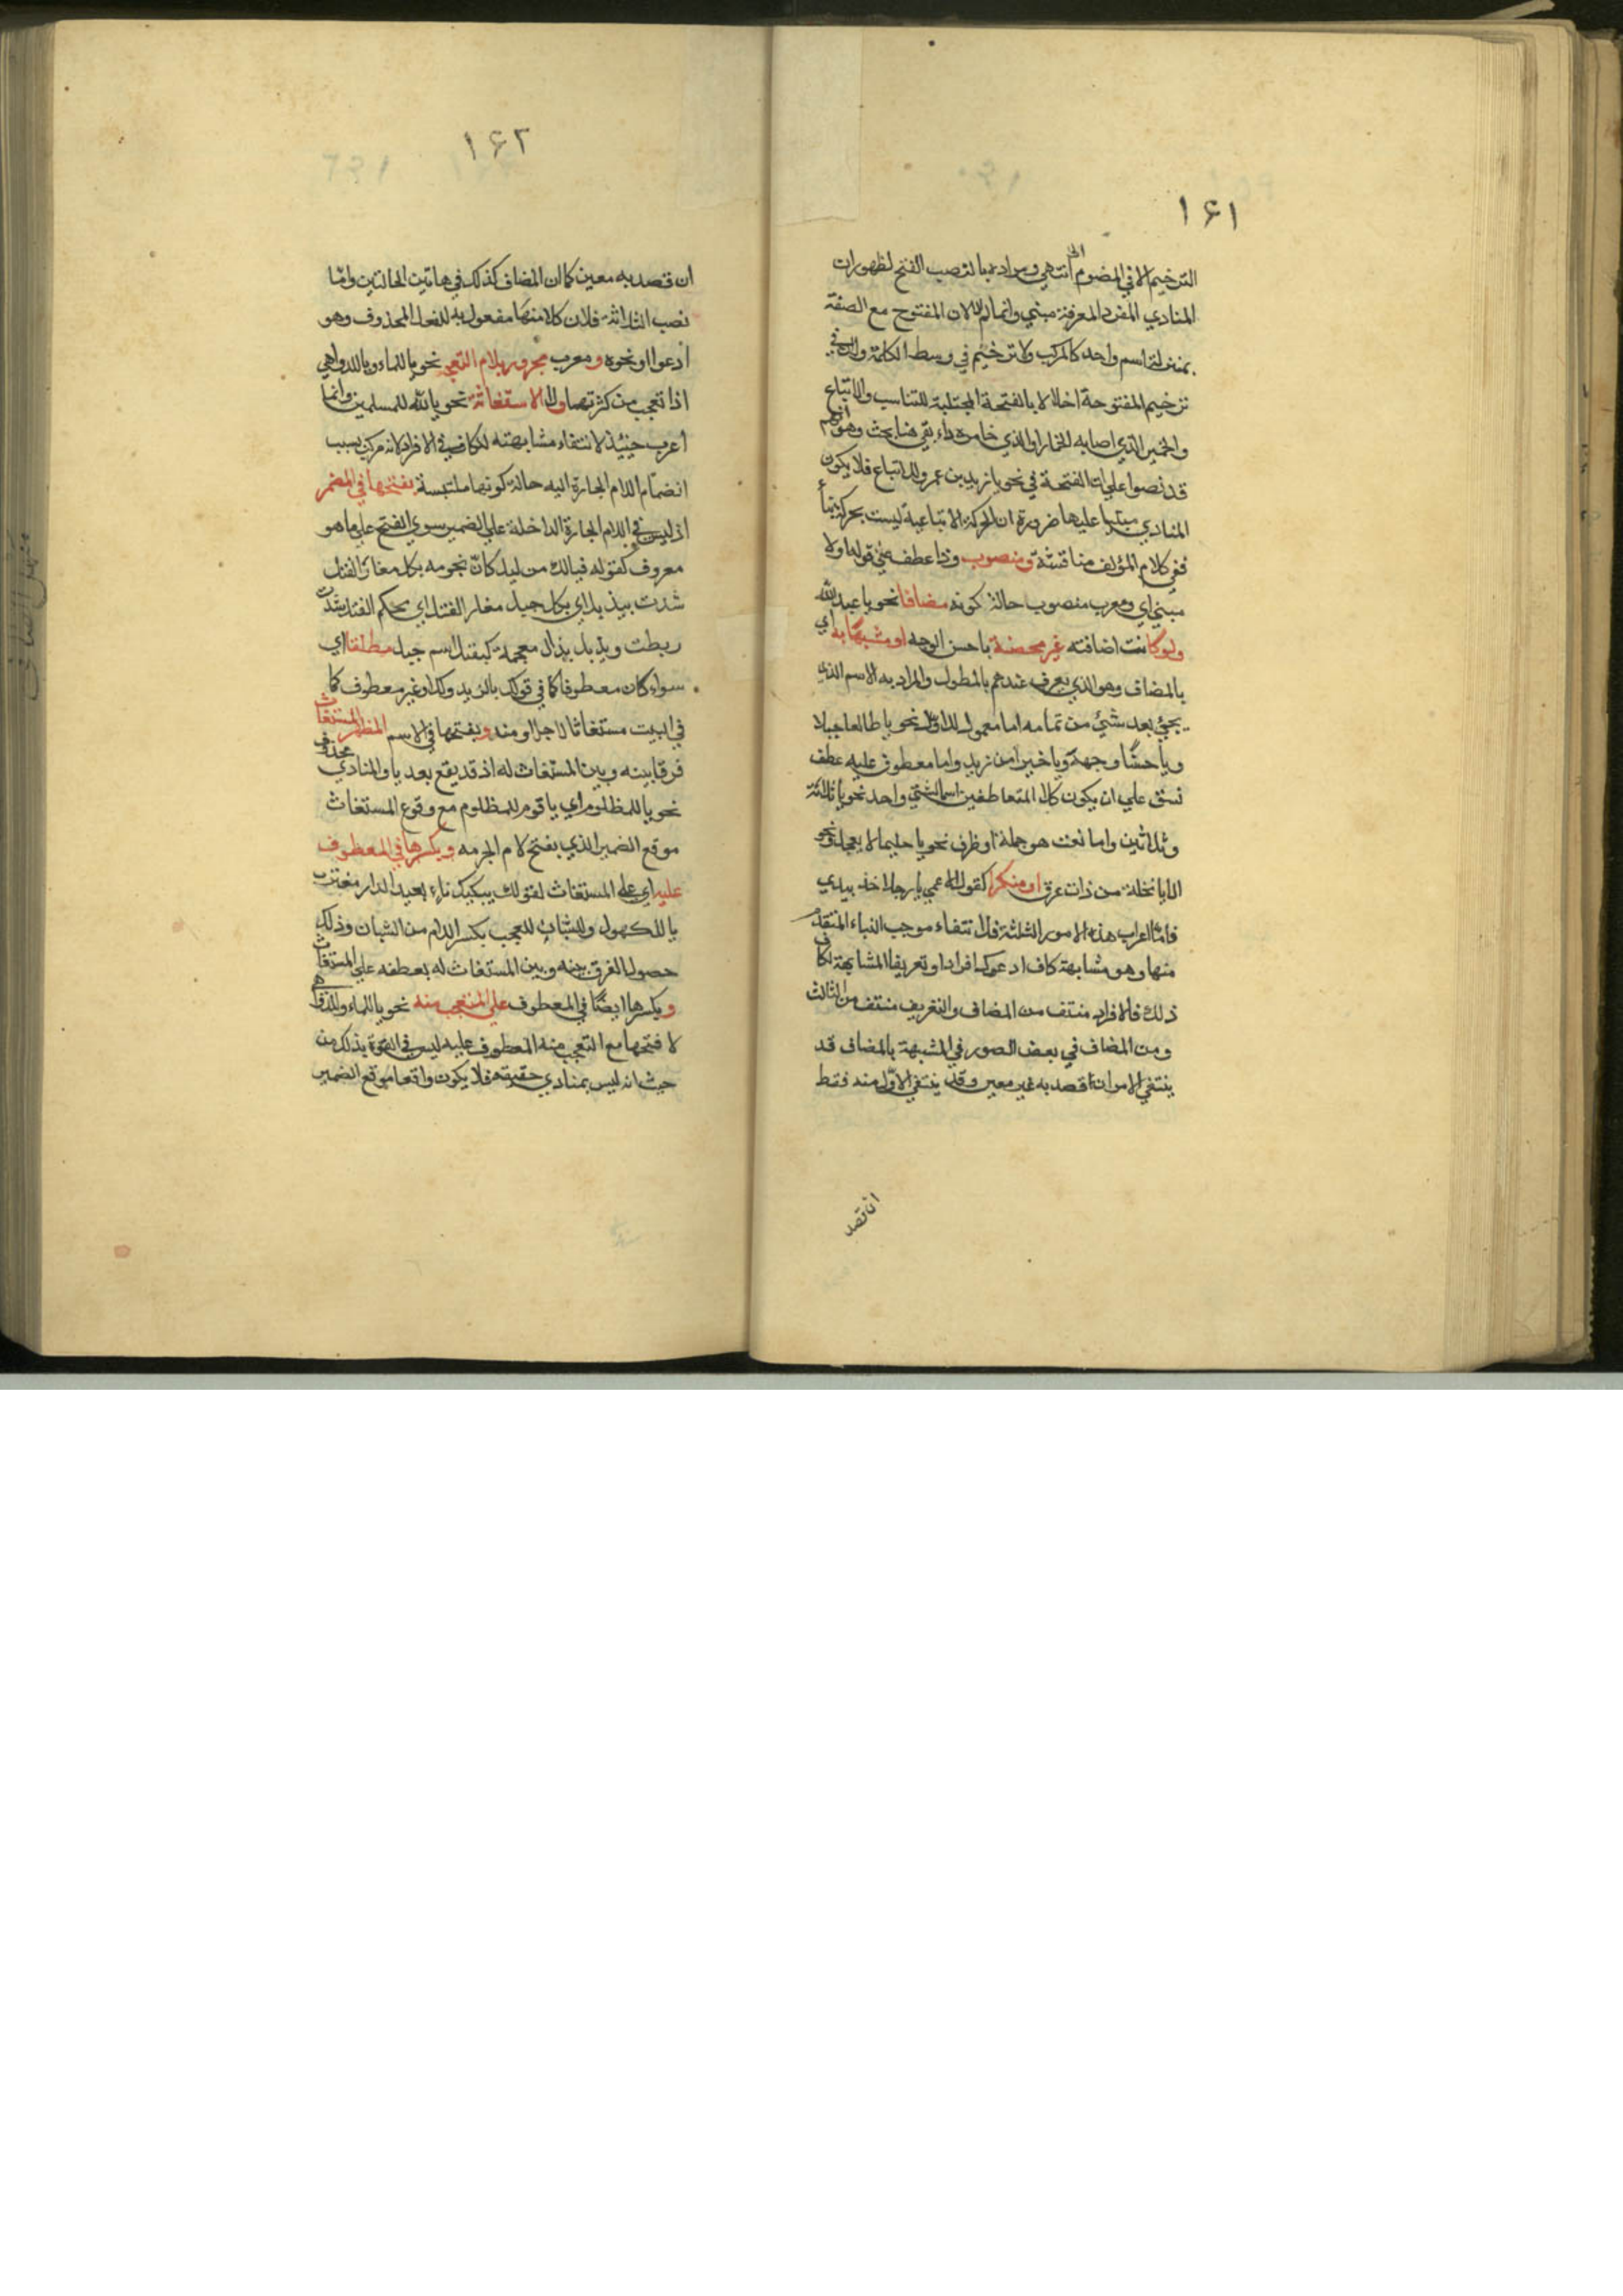 ١٦١
الترخيم الا في المضموم انتهى ومراده بالنصب الفتح لظهور ان
المنادي المفرد المعرفة مبني وانما لان المفتوح مع الصفة
بمنزلة اسم واحد كالمركب ولا ترخيم في وسط الكلمة ولان في
ترخيم المفتوحة اخلالا بالفتحة المجتلبة للتناسب والاتباع
والخمير الذي اصابه الخمار او الذي خامره داء بقي هنا بحث وهو انهم
قد نصوا على ان الفتحة في نحو يا زيد بن عمرو للاتباع فلا يكون
المنادي مبنيا عليها ضرورة ان الحركة الاتباعية ليست بحركة بناء
ففي كلام المؤلف مناقشة ومنصوب وذا عطف على قوله اولا
مبني اي ومعرب منصوب حالة كونه مضافا نحو يا عبد الله
ولو كانت اضافته غير محضة يا حسن الوجه او مشبها به اي
بالمضاف وهو الذي يعرف عندهم بالمطول والمراد به الاسم الذي
يجيء بعد شيء من تمامه اما معمول للاول نحو يا طالعا جبلا
ويا حسنا وجهه ويا خيرا من زيد واما معطوف عليه عطف
نسق على ان يكون كلا المتعاطفين اسما لشيء واحد نحو يا ثلاثة
وثلاثين واما نعت هو جملة او ظرف نحو يا حليما لا يعجل ونحو
الا يا نخلة من ذات عرق او منكرا كقول اعمى يا رجلا خذ بيدي
فاما اعراب هذه الامور الثلثة فلانتفاء موجب البناء المتقدم
منها وهو مشابهة كاف ادعوك افرادا وتعريفا المشابهة لكاف
ذلك فالافراد منتف من المضاف والتعريف منتف من الثالث
ومن المضاف في بعض الصور في المشبهة بالمضاف قد
ينتفي الامران اذا قصد به غير معين وقد ينتفي الاول منه فقط
ان قصد
١٦٢
ان قصد به معين كما ان المضاف كذلك في هاتين الحالتين واما
نصب الثلاثة فلان كلا منها مفعول به للفعل المحذوف وهو
ادعوا ونحوه ومعرب مجرور بلام التعجب نحو يا للماء ويا للدواهي
اذا تعجب من كثرتها ولام الاستغاثة نحو يا لله للمسلمين وانما
اعرب حينئذ لانتفاء مشابهته للكاف في الافراد لانه مركب بسبب
انضمام اللام الجارة اليه حالة كونها ملتبسة بفتحها في المضمر
اذ ليس في اللام الجارة الداخلة على الضمير سوى الفتح على ما هو
معروف كقوله فيا لك من ليل كان نجومه بكل مغار الفتل
شدت بيذبل اي بكل حبل مغار الفتل اي محكم الفتل شدت
ربطت ويذبل بذال معجمة كيقتل اسم جبل مطلقا اي
سواء كان معطوفا كما في قولك يا لزيد ولك او غير معطوف كما
في البيت مستغاثا لاجل او منه وبفتحها في الاسم المظهر المستغاث
فرقا بينه وبين المستغاث له اذ قد يقع بعد يا والمنادي محذوف
نحو يا للمظلوم اي يا قوم للمظلوم مع وقوع المستغاث
موقع الضمير الذي يفتح لام الجر معه وبكسرها في المعطوف
عليه اي على المستغاث لقولك يبكيك ناء بعيد الدار مغترب
يا للكهول وللشبان للعجب بكسر اللام من الشبان وذلك
حصول الفرق بينه وبين المستغاث له بعطفه على المستغاث
وبكسرها ايضا في المعطوف على المتعجب منه نحو يا للماء وللدواهي
لا فتحها مع التعجب منه المعطوف عليه ليس في القوة بذلك من
حيث انه ليس بمنادي حقيقة فلا يكون واقعا موقع الضمير